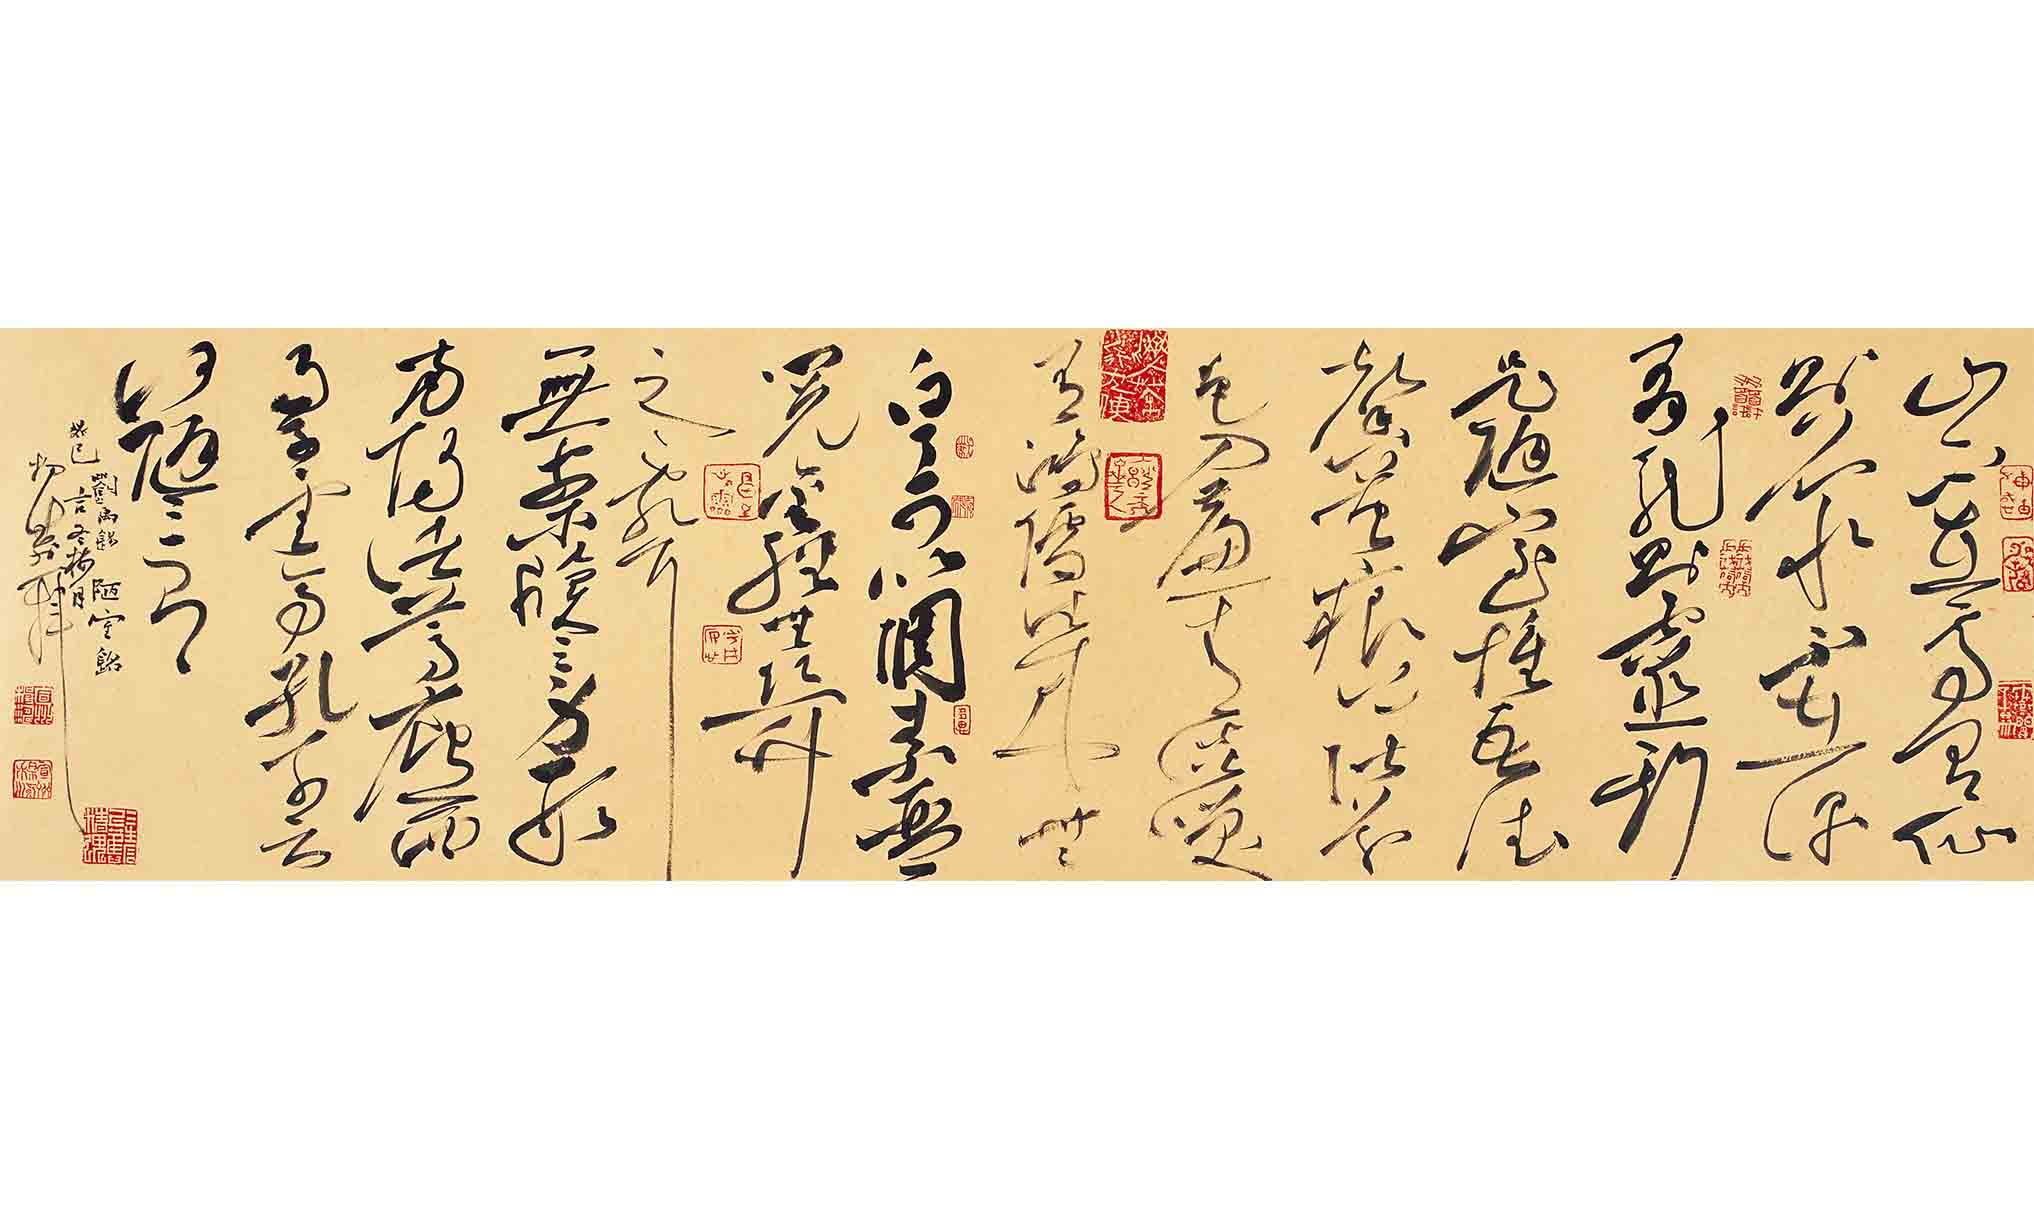 山不在高有仙
則名水不在深
有龍則靈斯
是陋室惟吾德
馨苔痕上階
色入簾青談笑
有鴻儒往來無
白丁可以調素琴
閱金經無絲竹
之亂耳
無案牘之勞形
南陽諸葛廬西
蜀子雲亭孔子云
何陋之有
劉禹錫 陋室銘
癸巳 荷月